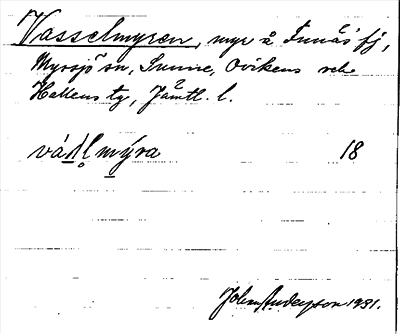 Vasselmyren, myr å Funäs' fj,
Myssjö sn, Sunne, Ovikens och
Hallens tg, Jämtl. l.
vásḷmýra 18
John Anderson 1931.